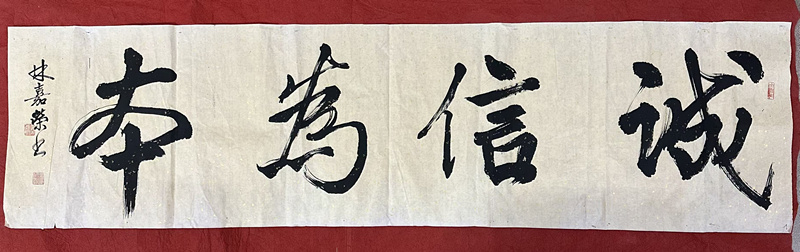 诚信为本
林嘉荣书